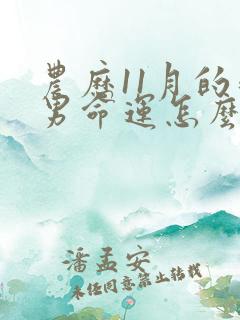 農歷11月的
男命運怎麼
潘孟安
未任同意禁止转載